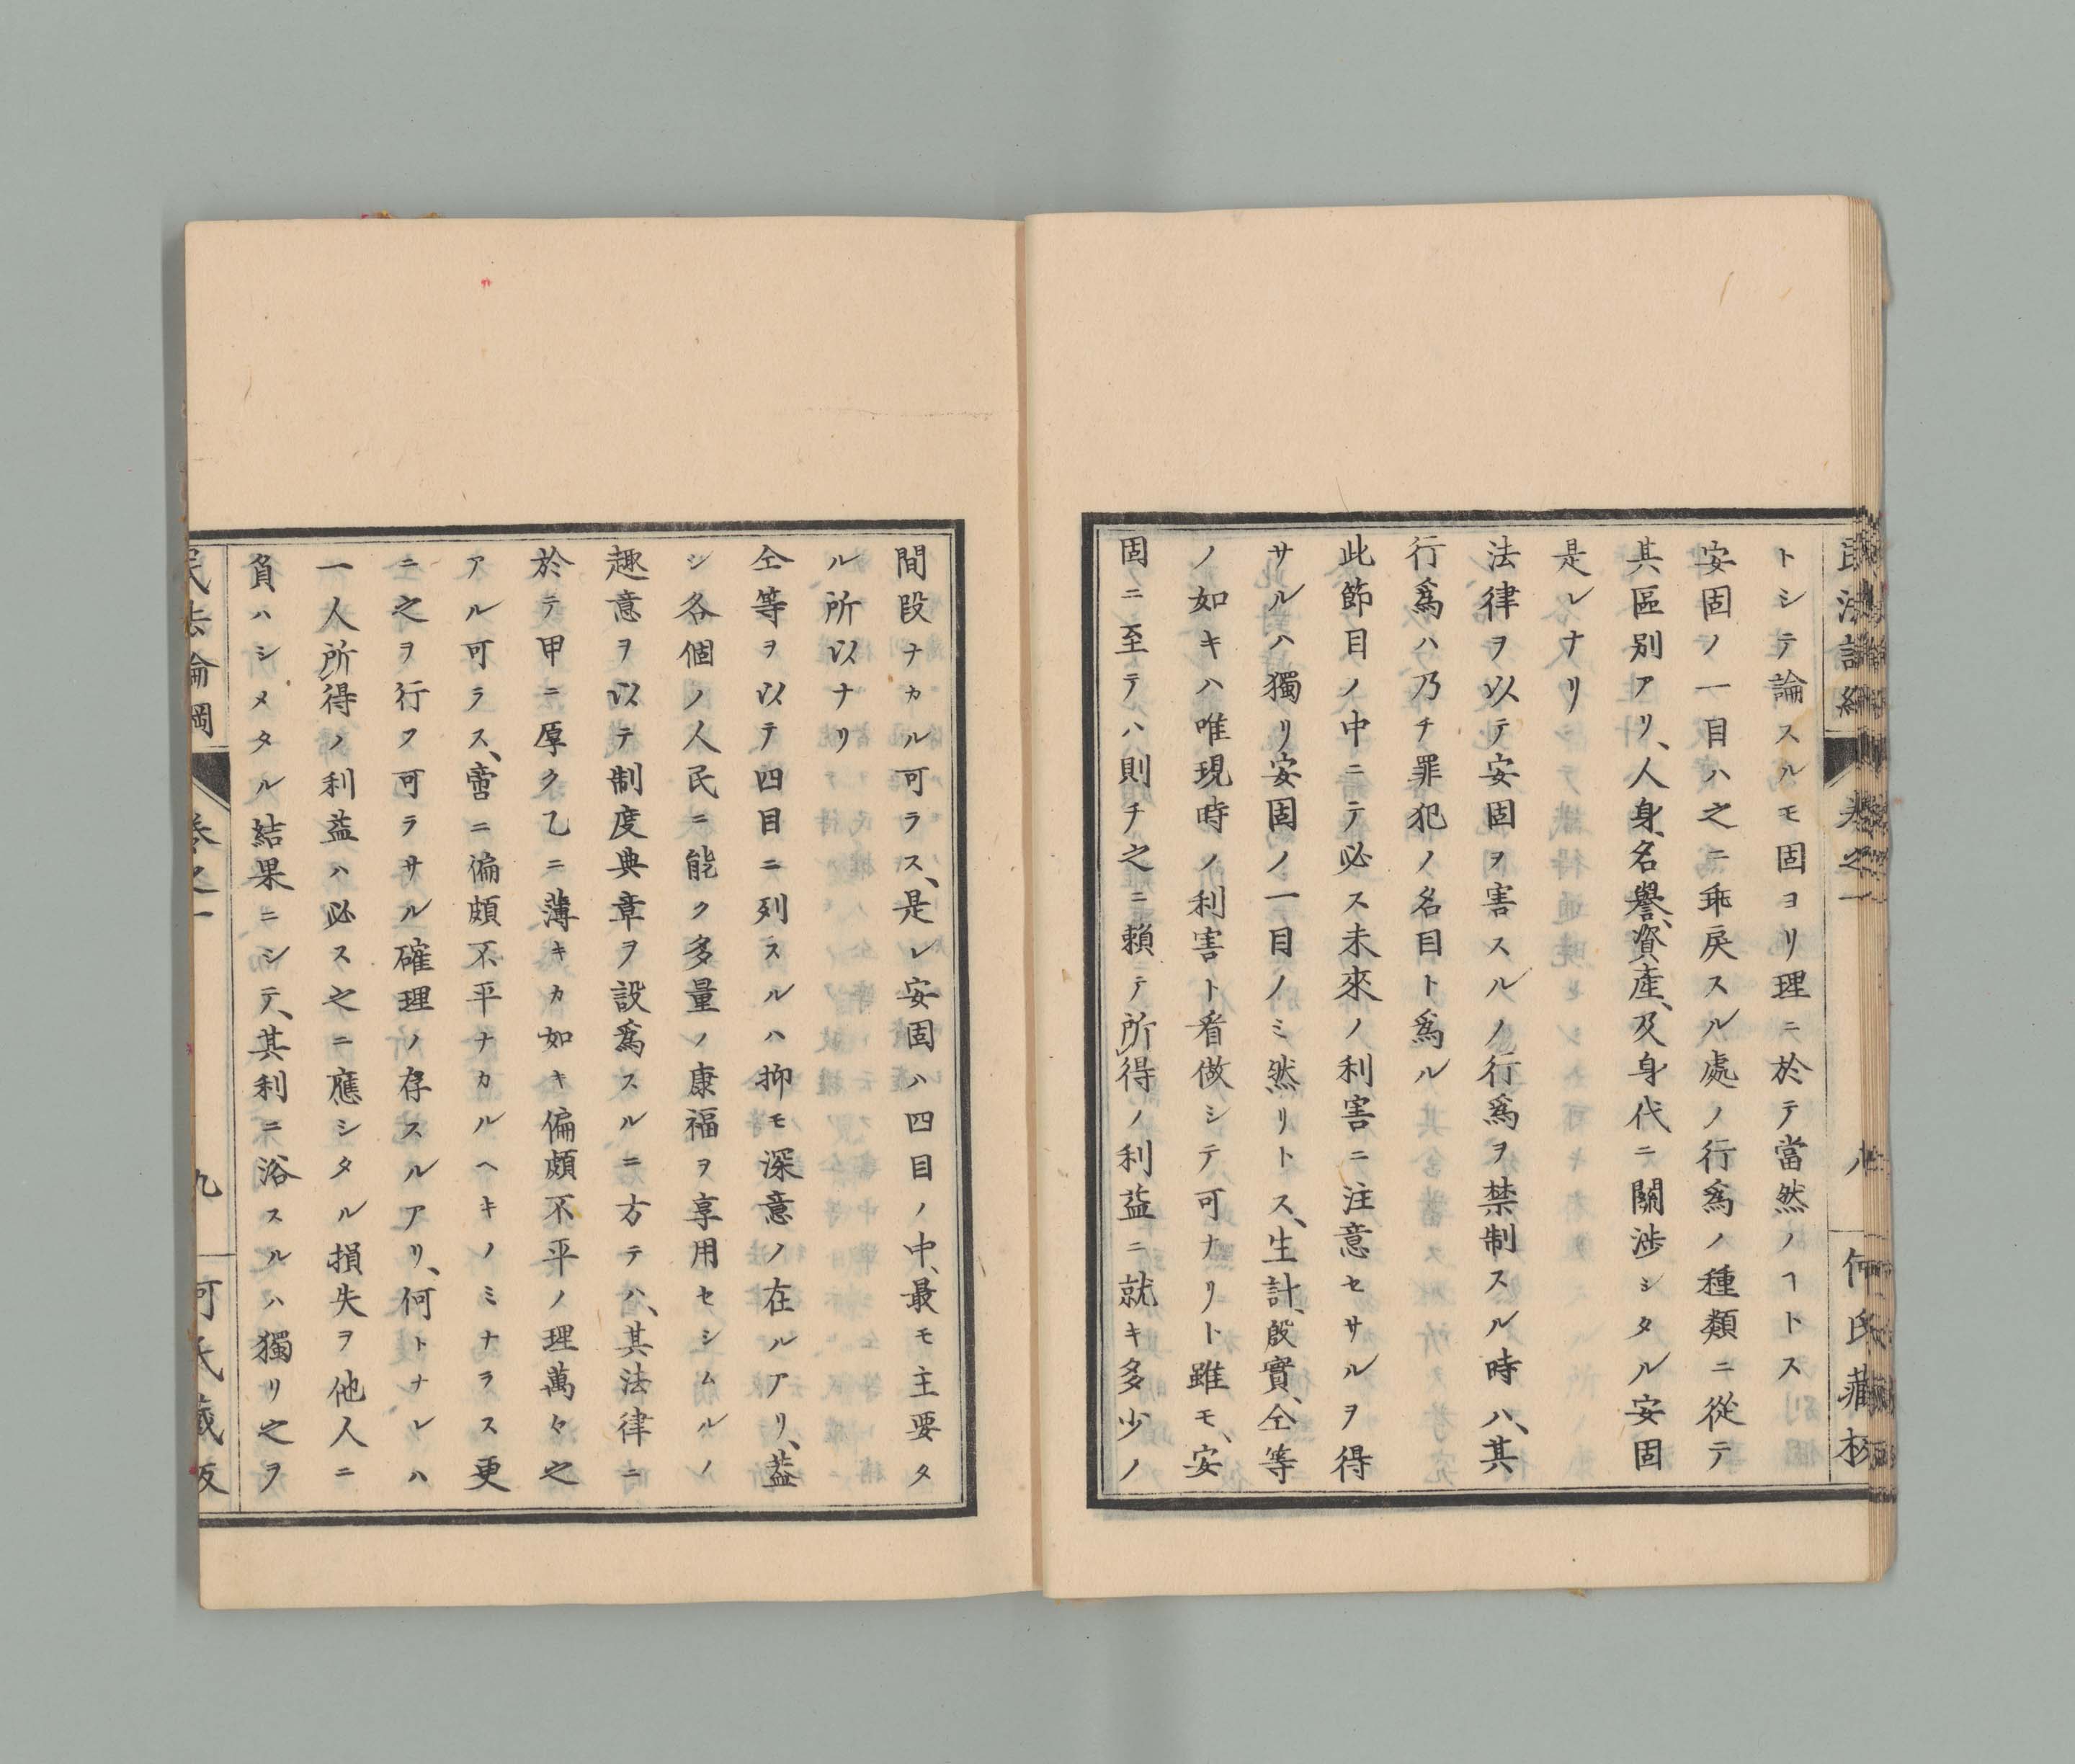 民法論綱
卷之一
八
何氏藏板
トシテ論スルモ固ヨリ理ニ於テ當然ノヿトス
安固ノ一目ハ之ニ乖戾スル處ノ行爲ノ種類ニ從テ
其區別アリ、人身、名譽、資產、及身代ニ關涉シタル安固
是レナリ
法律ヲ以テ安固ヲ害スルノ行爲ヲ禁制スル時ハ、其
行爲ハ乃チ罪犯ノ名目ト爲ル
此節目ノ中ニテ必ス未來ノ利害ニ注意セサルヲ得
サルハ獨リ安固ノ一目ノミ然リトス、生計、殷實、仝等
ノ如キハ唯現時ノ利害ト看做シテ可ナリト雖モ、安
固ニ至テハ則チ之ニ賴テ所得ノ利益ニ就キ多少ノ
間段ナカル可ラス、是レ安固ハ四目ノ中、最モ主要タ
ル所以ナリ
仝等ヲ以テ四目ニ列スルハ抑モ深意ノ在ルアリ、葢
シ各個ノ人民ニ能ク多量ノ康福ヲ享用セシムルノ
趣意ヲ以テ制度典章ヲ設爲スルニ方テハ、其法律ニ
於テ甲ニ厚ク乙ニ薄キカ如キ偏頗不平ノ理萬々之
アル可ラス、啻ニ偏頗不平ナカルヘキノミナラス更
ニ之ヲ行フ可ラサル確理ノ存スルアリ、何トナレハ
一人所得ノ利益ハ必ス之ニ應シタル損失ヲ他人ニ
負ハシメタル結果ニシテ、其利ニ浴スルハ獨リ之ヲ
民法論綱
卷之一
九
何氏藏板